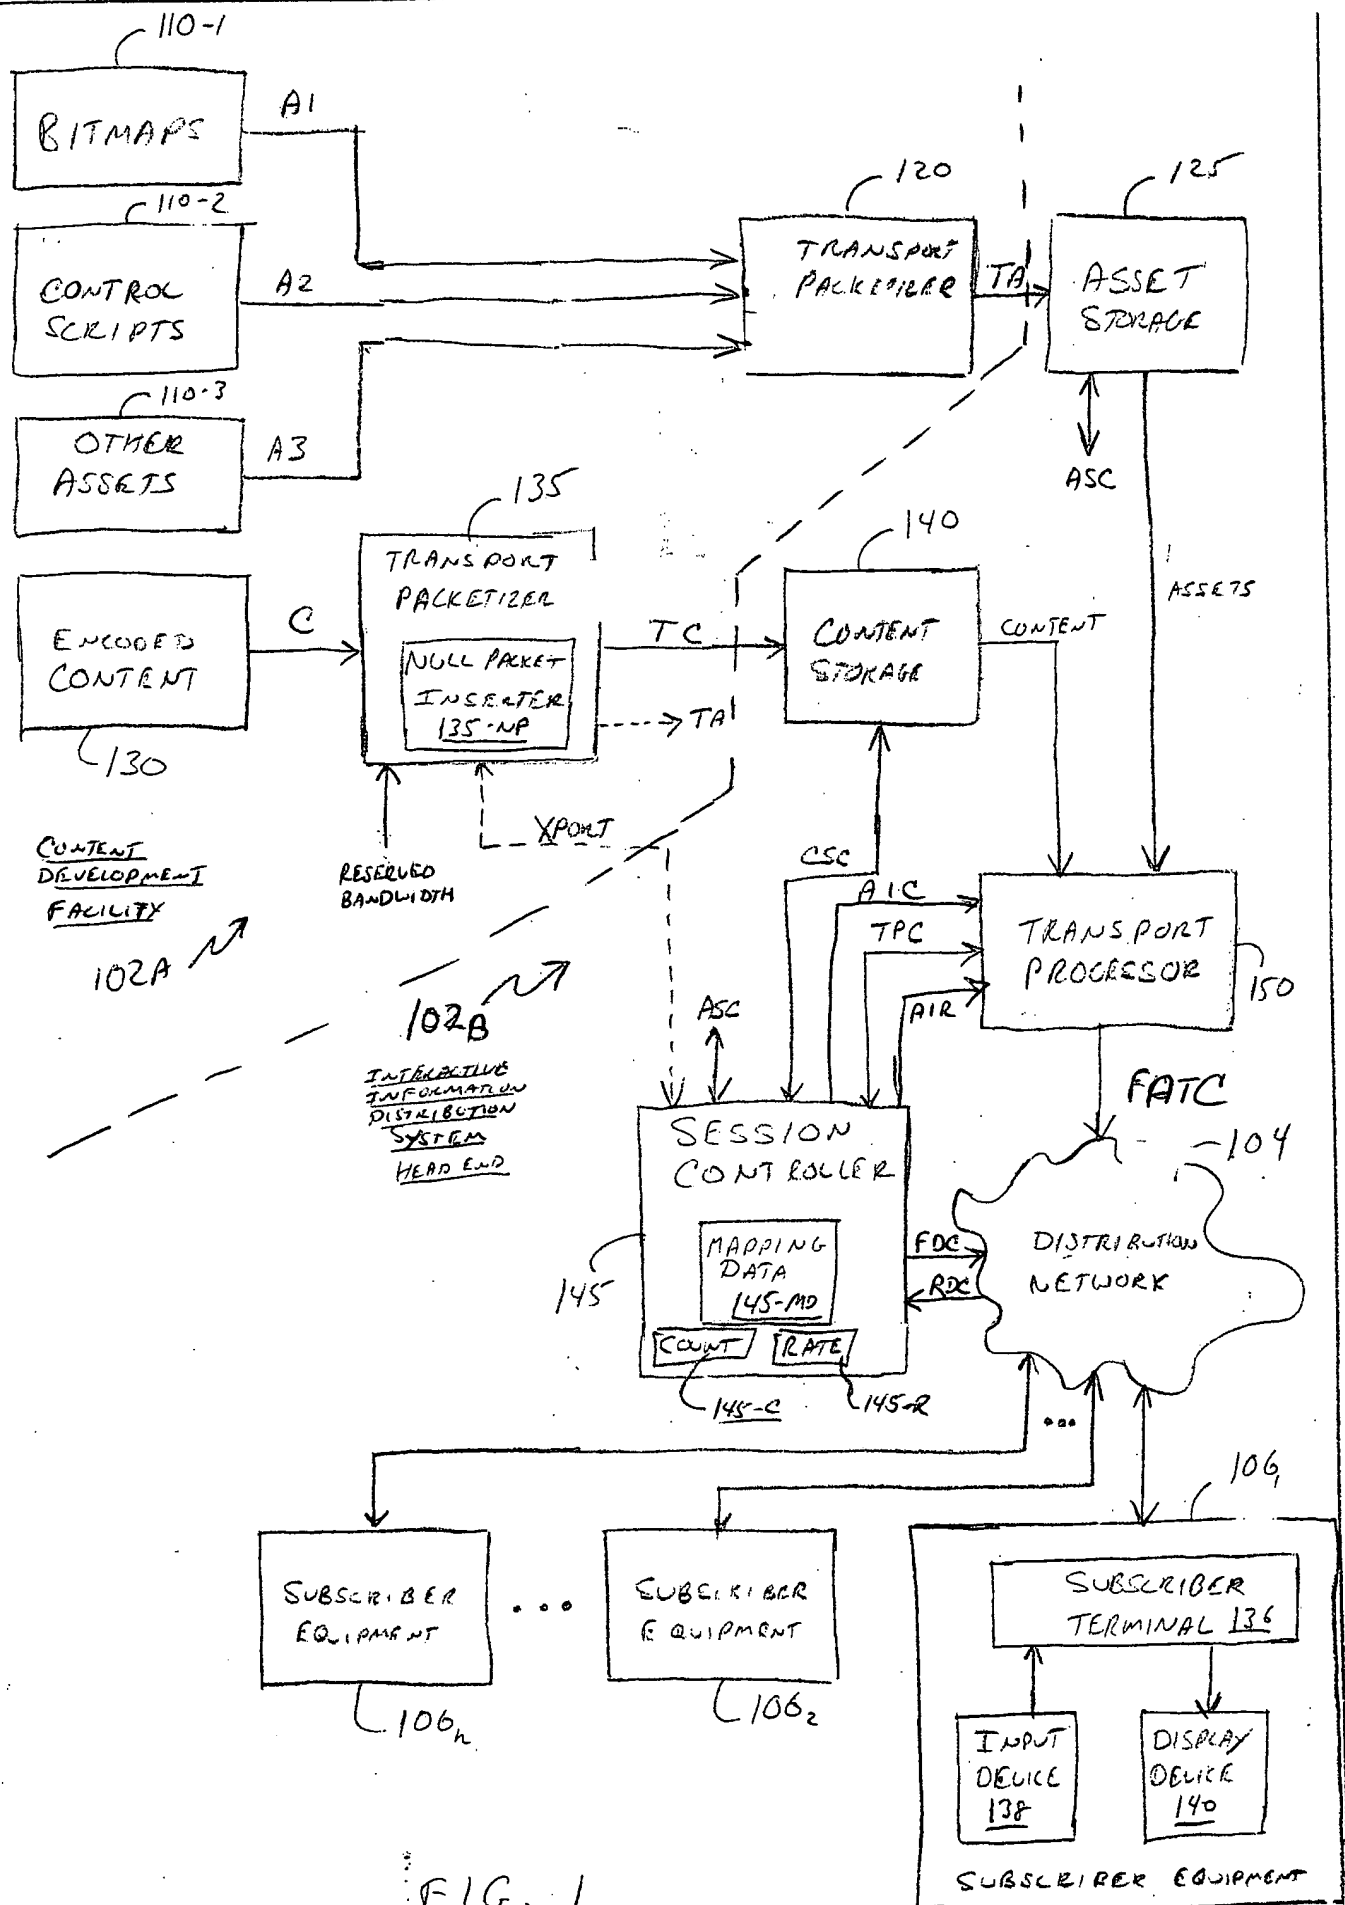 110-1
BITMAPS
A1
110-2
CONTROL
SCRIPTS
A2
110-3
OTHER
ASSETS
A3
120
TRANSPORT
PACKETIZER
TA
125
ASSET
STORAGE
ASC
ASSETS
135
TRANSPORT
PACKETIZER
NULL PACKET
INSERTER
135-NP
TC
TA
140
CONTENT
STORAGE
CONTENT
ENCODED
CONTENT
C
130
CONTENT
DEVELOPMENT
FACILITY
102A
RESERVED
BANDWIDTH
XPORT
102B
INTERACTIVE
INFORMATION
DISTRIBUTION
SYSTEM
HEAD END
CSC
AIC
TPC
AIR
ASC
TRANSPORT
PROCESSOR
150
FATC
104
SESSION
CONTROLLER
MAPPING
DATA
145-MD
COUNT
RATE
145
145-C
145-R
FDC
RDC
DISTRIBUTION
NETWORK
...
106n
SUBSCRIBER
EQUIPMENT
...
SUBSCRIBER
EQUIPMENT
1062
1061
SUBSCRIBER
TERMINAL 136
INPUT
DEVICE
138
DISPLAY
DEVICE
140
SUBSCRIBER EQUIPMENT
FIG. 1